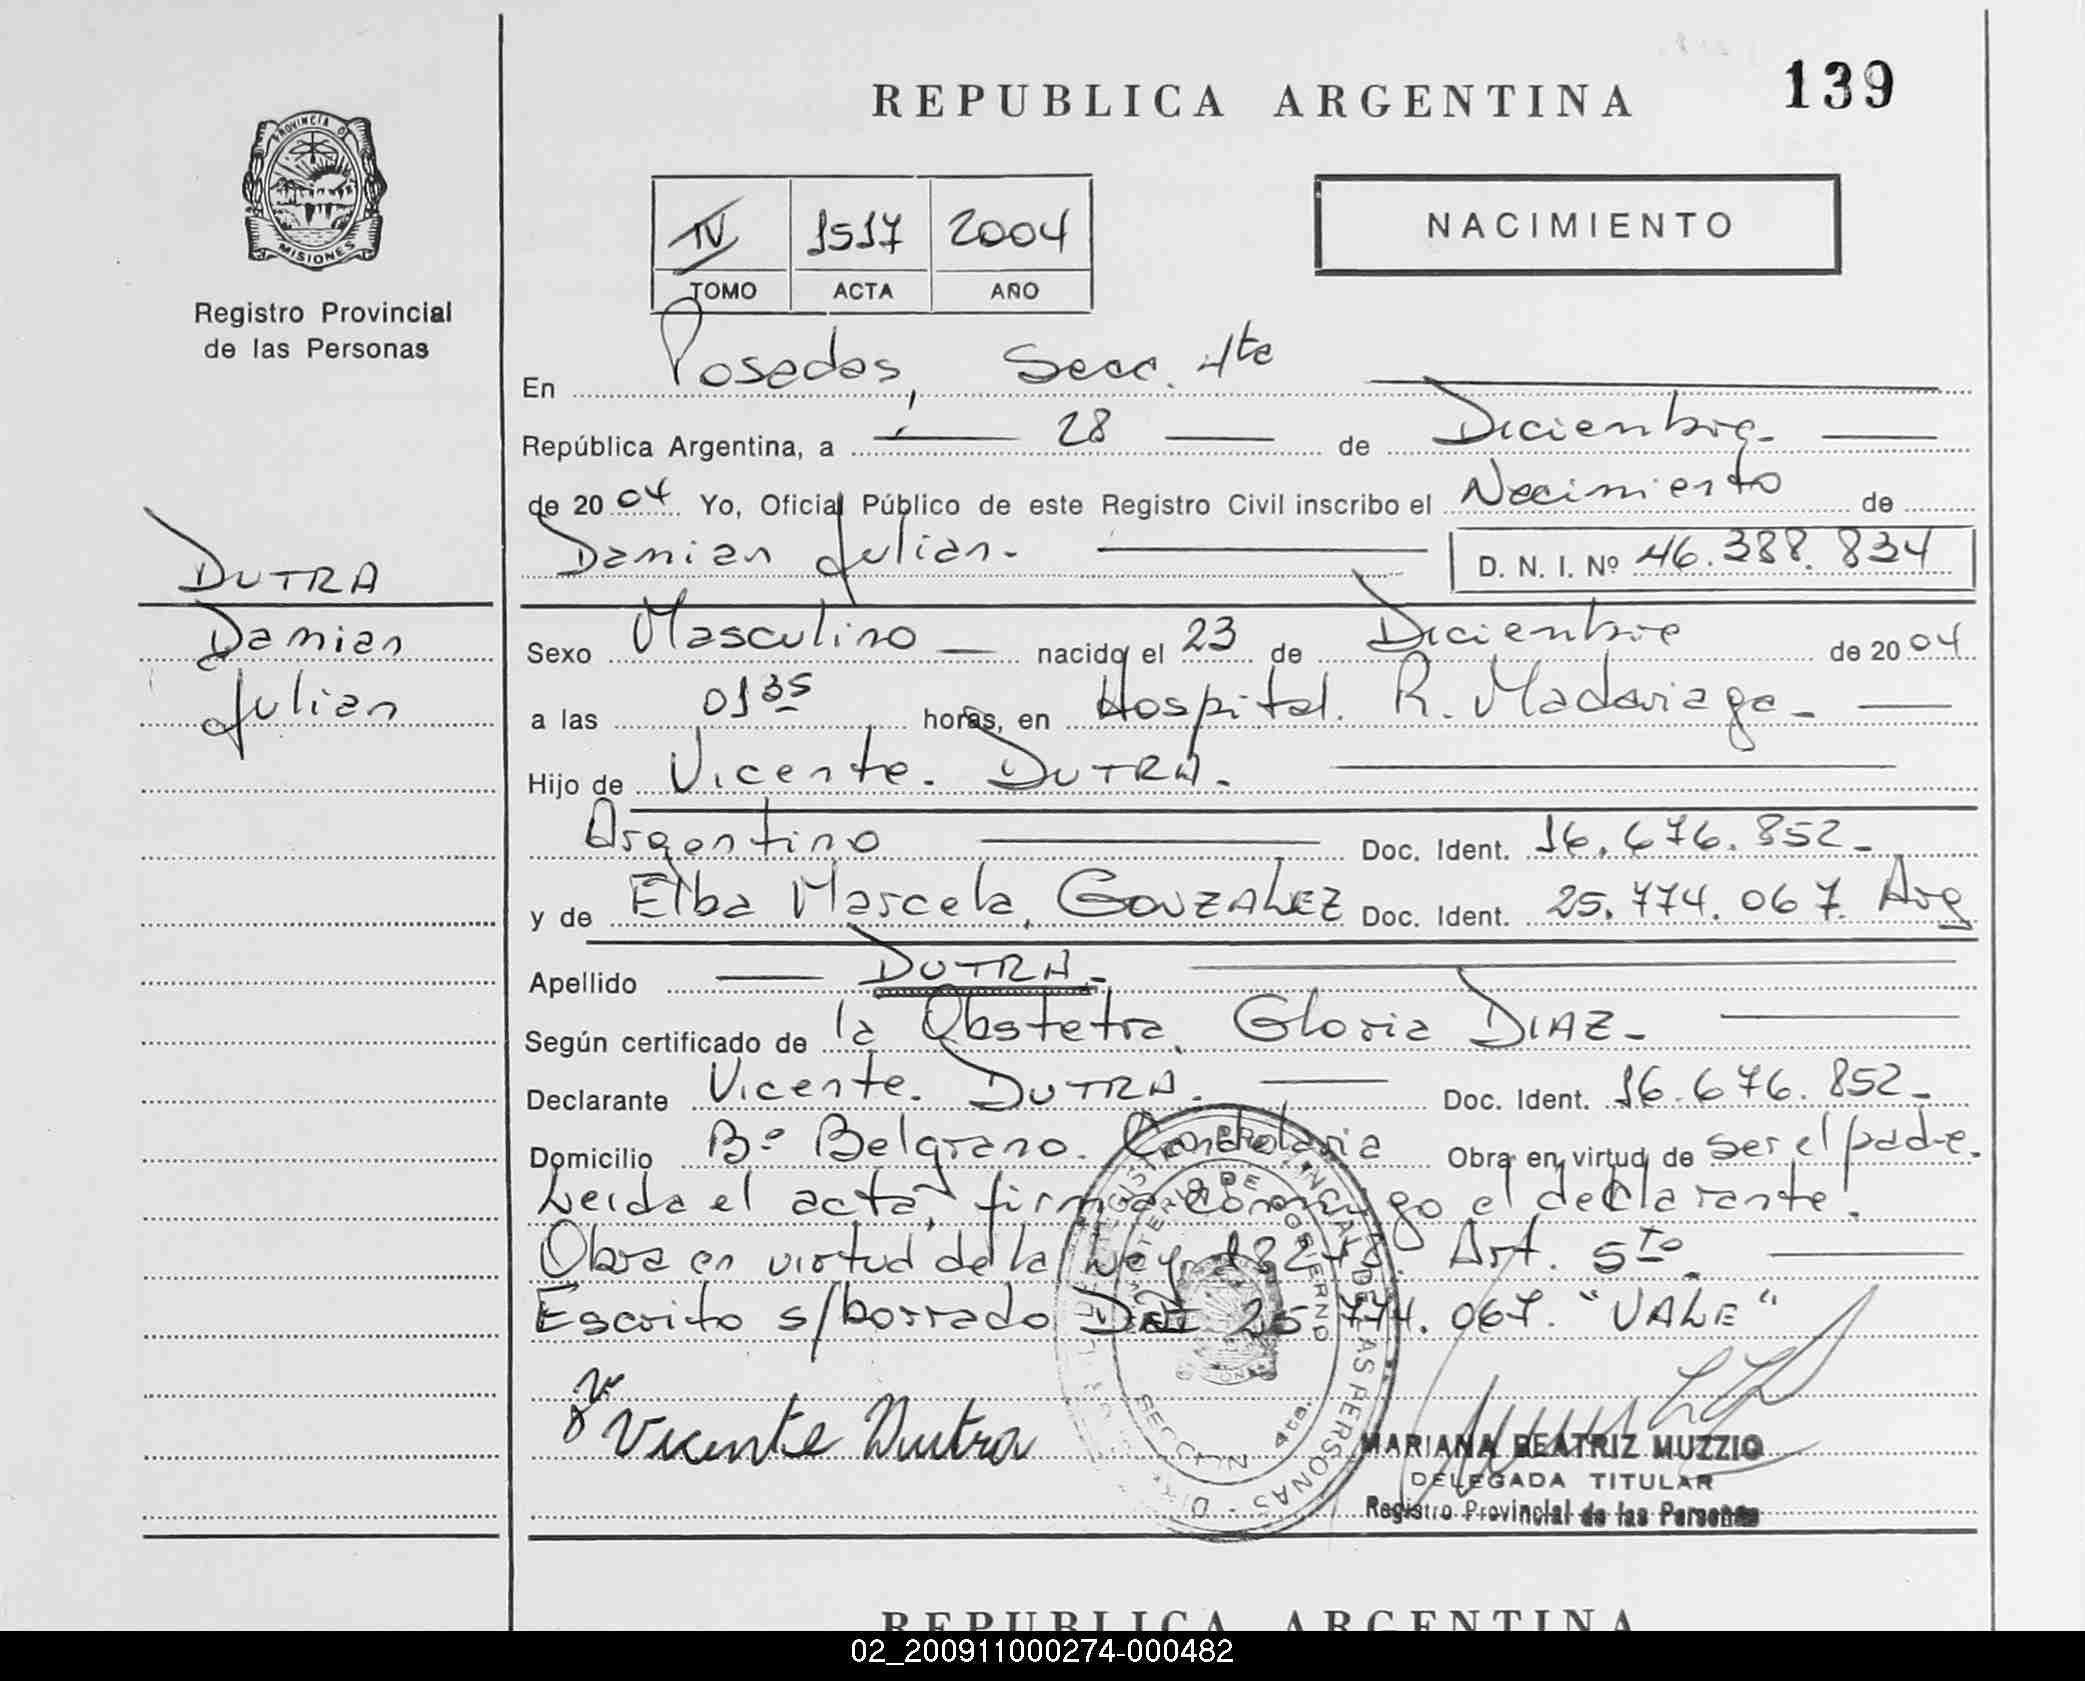 REPUBLICA ARGENTINA
139
PROVINCIA D
MISIONES
Registro Provincial
de las Personas
IV 1517 2004
TOMO ACTA AÑO
NACIMIENTO
En Posadas, Secc. 4ta
República Argentina, a 28 de Diciembre
de 20 04 Yo, Oficial Público de este Registro Civil inscribo el Nacimiento de
Damian Julian. D. N. I. Nº 46.388.834
DUTRA
Damian
Julian
Sexo Masculino nacido el 23 de Diciembre de 20 04
a las 01 35 horas, en Hospital. R. Madariaga
Hijo de Vicente. DUTRA.
Argentino Doc. Ident. 16.676.852
y de Elba Marcela. GONZALEZ Doc. Ident. 25.774.067 Arg
Apellido DUTRA
Según certificado de la Obstetra. Gloria DIAZ
Declarante Vicente. DUTRA. Doc. Ident. 16.676.852
Domicilio Bº Belgrano. Candelaria Obra en virtud de ser el padre.
Leida el acta, firma conmigo el declarante.
Obra en virtud de la Ley 18248. Art. 5to.
Escrito s/borrado 25.774.067. "VALE"
Vicente Dutra
REGISTRO PROVINCIAL DE LAS PERSONAS
MINISTERIO DE GOBIERNO
SECCION 4ta.
MARIANA BEATRIZ MUZZIO
DELEGADA TITULAR
Registro Provincial de las Personas
REPUBLICA ARGENTINA
02_200911000274-000482